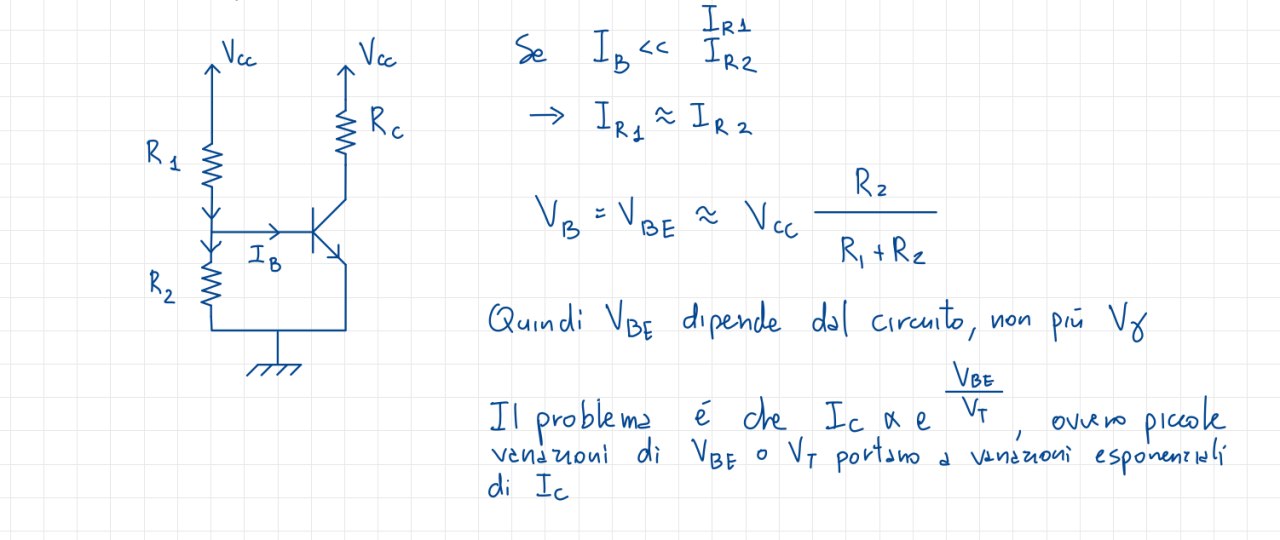 Vcc
Vcc
R1
Rc
IB
R2
Se IB << IR1 IR2
→ IR1 ≈ IR2
VB = VBE ≈ Vcc R2 / (R1 + R2)
Quindi VBE dipende dal circuito, non più Vγ
Il problema é che Ic α e^(VBE/VT), ovvero piccole
variazioni di VBE o VT portano a variazioni esponenziali
di Ic